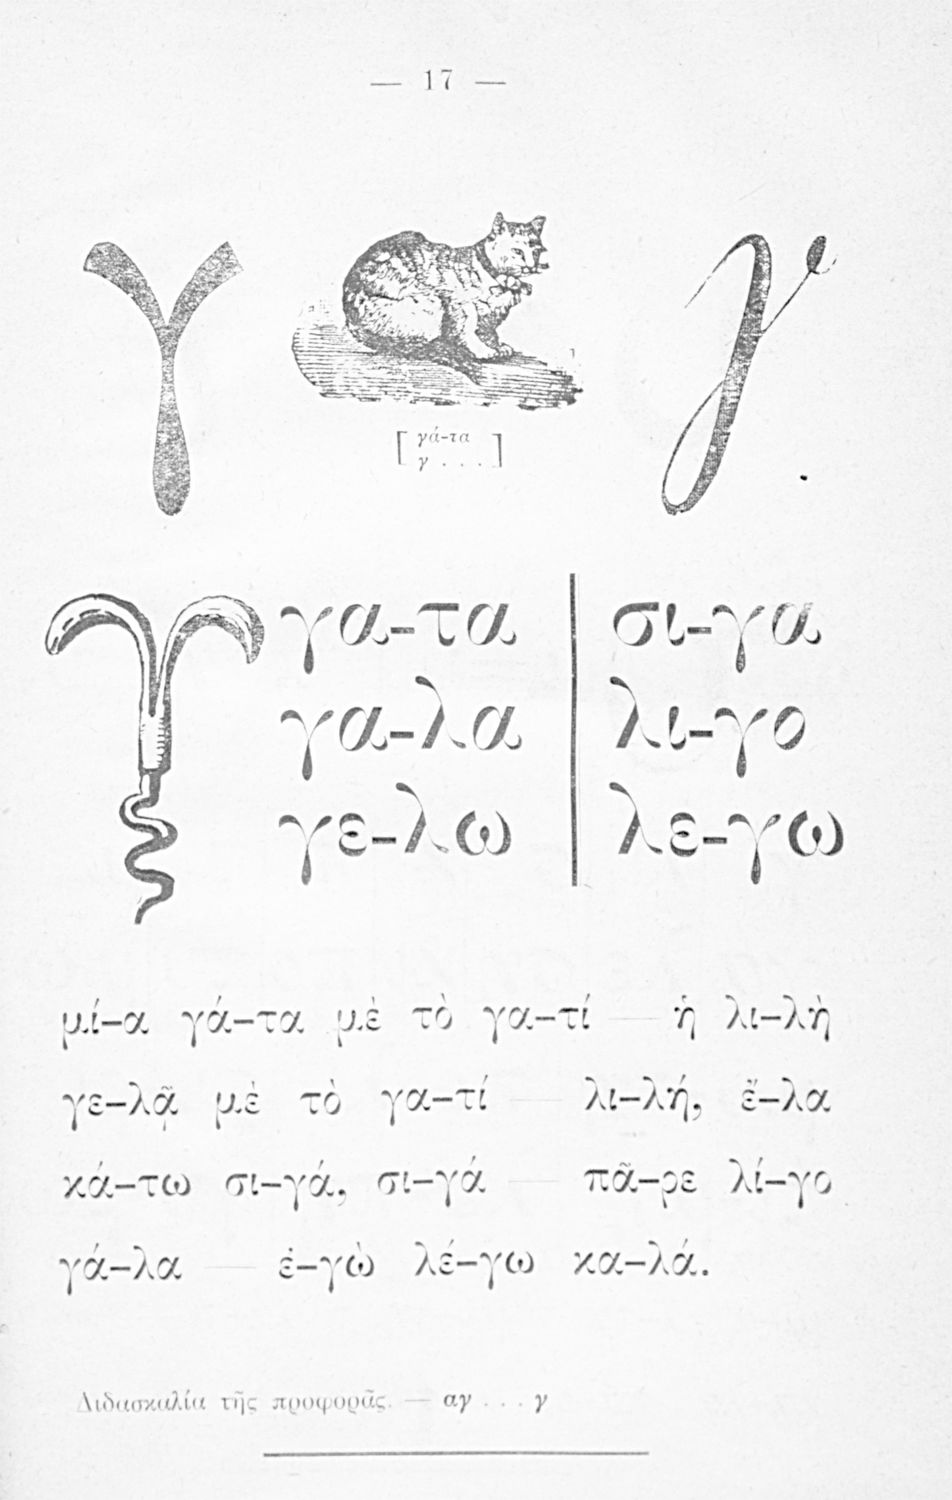 — 17 —
γ γ
[ γά-τα
γ . . . ]
γα-τα σι-γα
γα-λα λι-γο
γε-λω λε-γω
μί-α γά-τα μὲ τὸ γα-τί — ἡ λι-λὴ
γε-λᾷ μὲ τὸ γα-τί — λι-λή, ἔ-λα
κά-τω σι-γά, σι-γά — πᾶ-ρε λί-γο
γά-λα — ἐ-γὼ λέ-γω κα-λά.
Διδασκαλία τῆς προφορᾶς. — αγ . . . γ